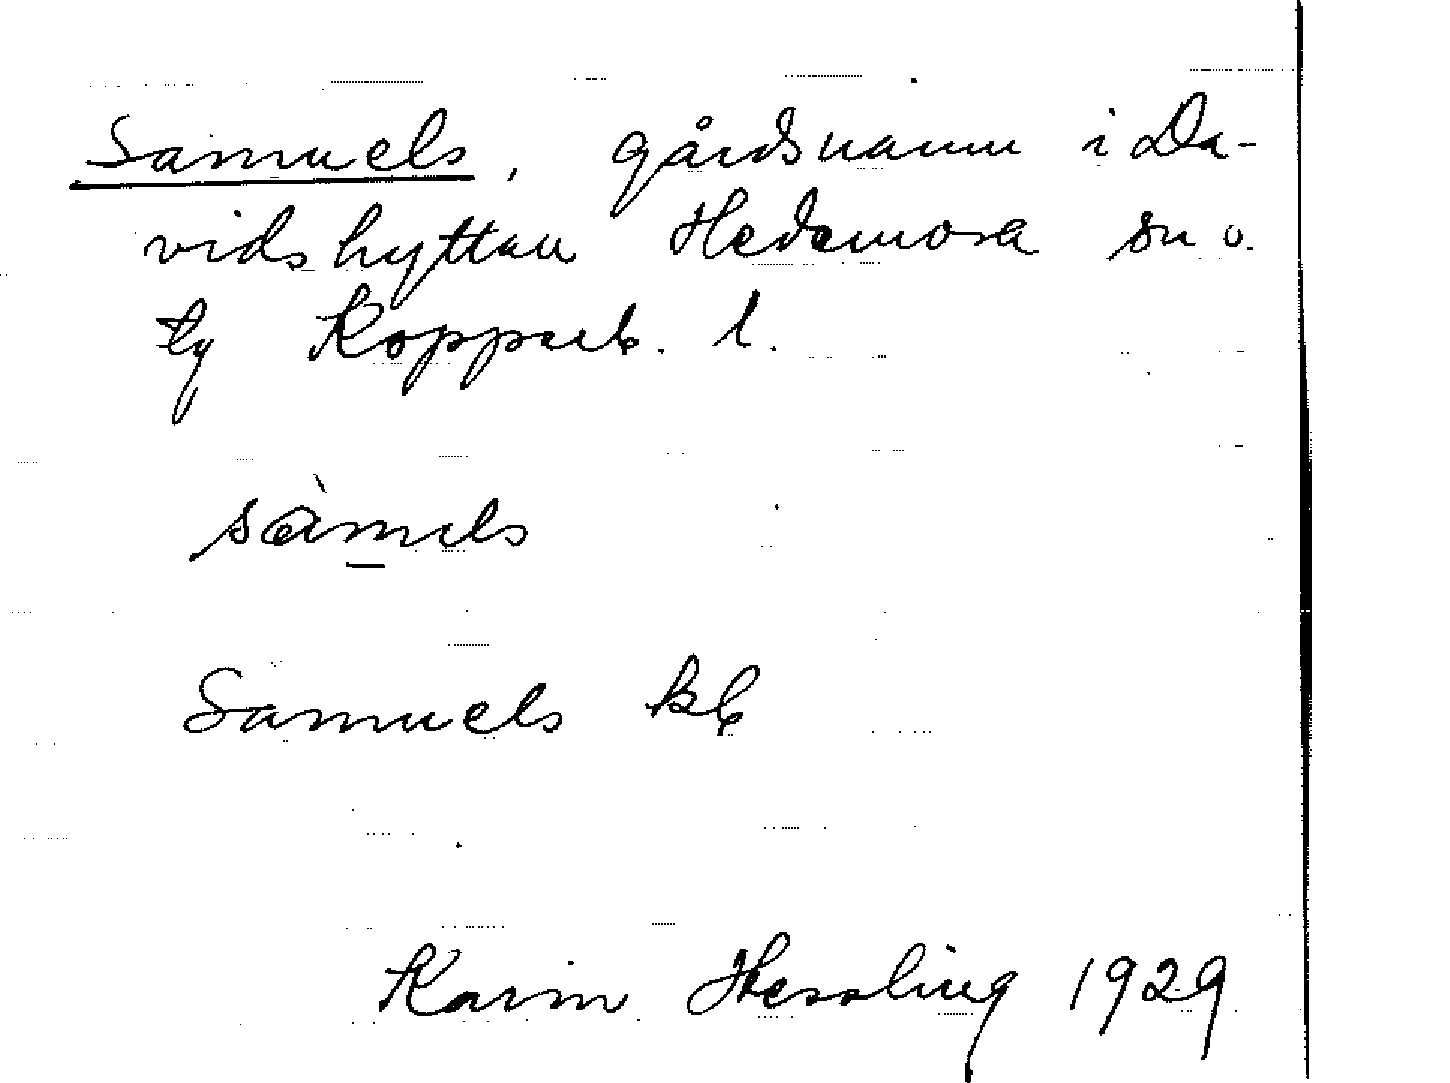 Samuels, gårdsnamn i Da-
vidshyttan Hedemora sn o.
tg Kopparb. l.
sàmels
Samuels kb
Karin Hessling 1929